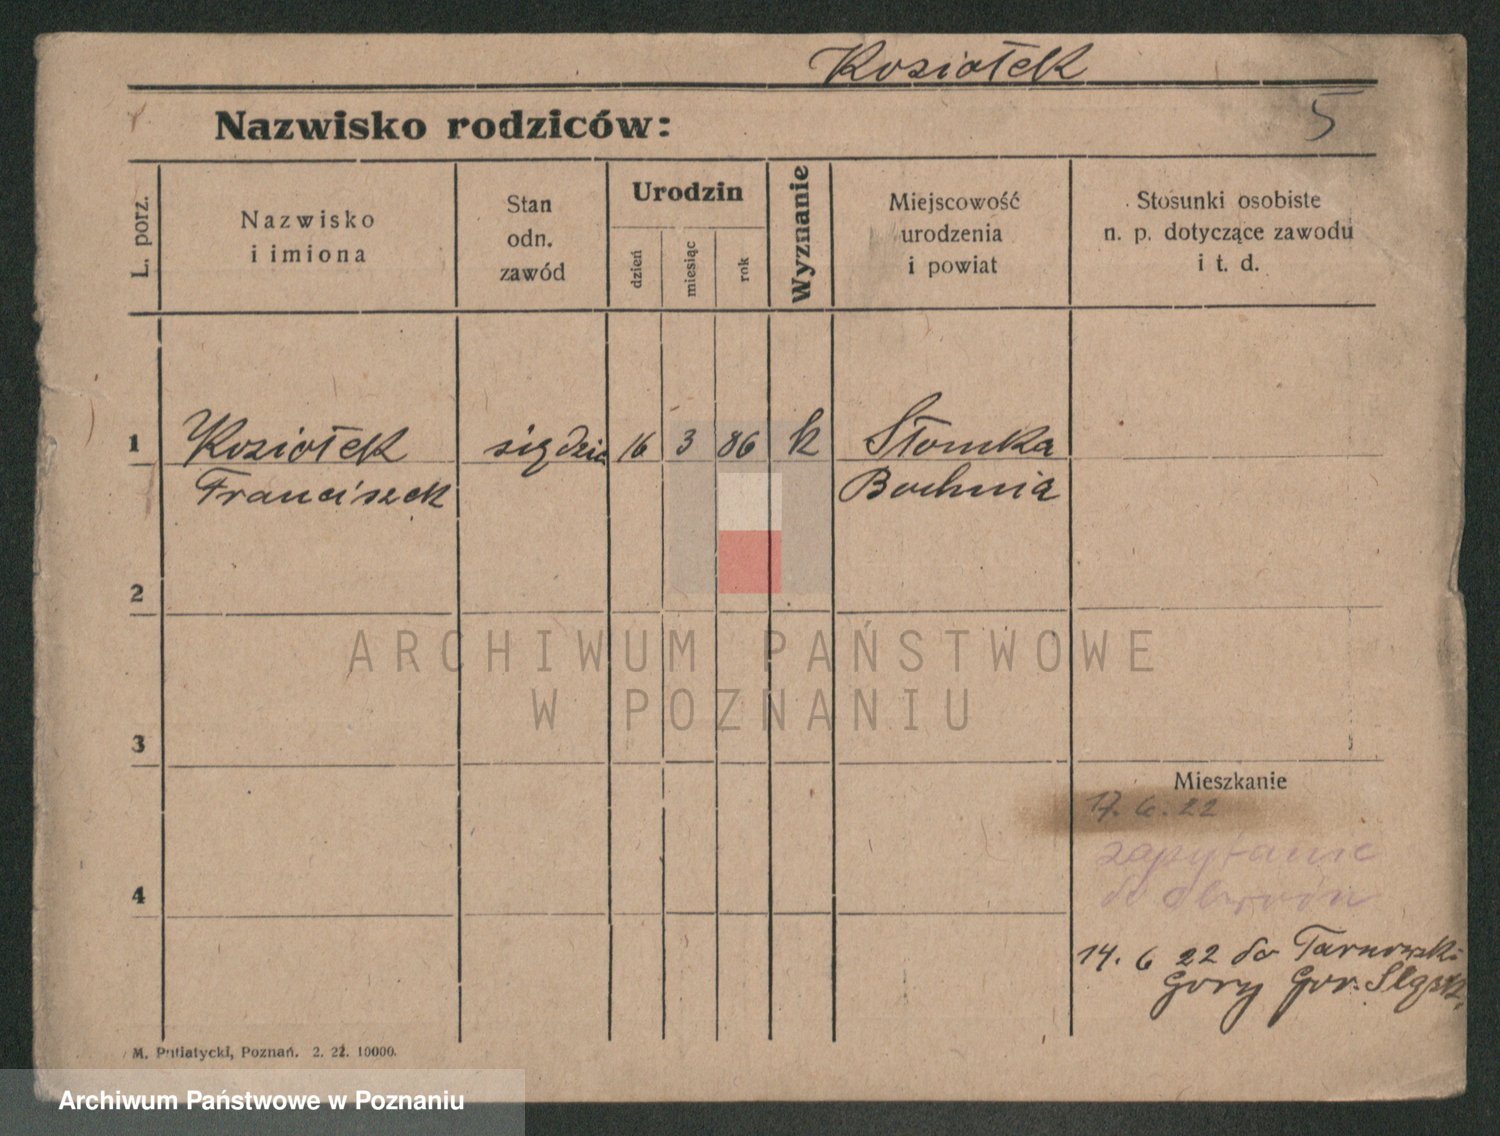 Koziołek
Nazwisko rodziców:
5
L. porz.
Nazwisko
i imiona
Stan
odn.
zawód
Urodzin
dzień
miesiąc
rok
Wyznanie
Miejscowość
urodzenia
i powiat
Stosunki osobiste
n. p. dotyczące zawodu
i t. d.
1 Koziołek sędzia 16 3 86 k Słomka
Franciszek Bochnia
2
ARCHIWUM PAŃSTWOWE
W POZNANIU
3
Mieszkanie
17. 6. 22
zapytanie
do
4
14. 6 22 do Tarnowski
Gory Gor. Śląsk.
M. Putiatycki, Poznań. 2. 22. 10000.
Archiwum Państwowe w Poznaniu